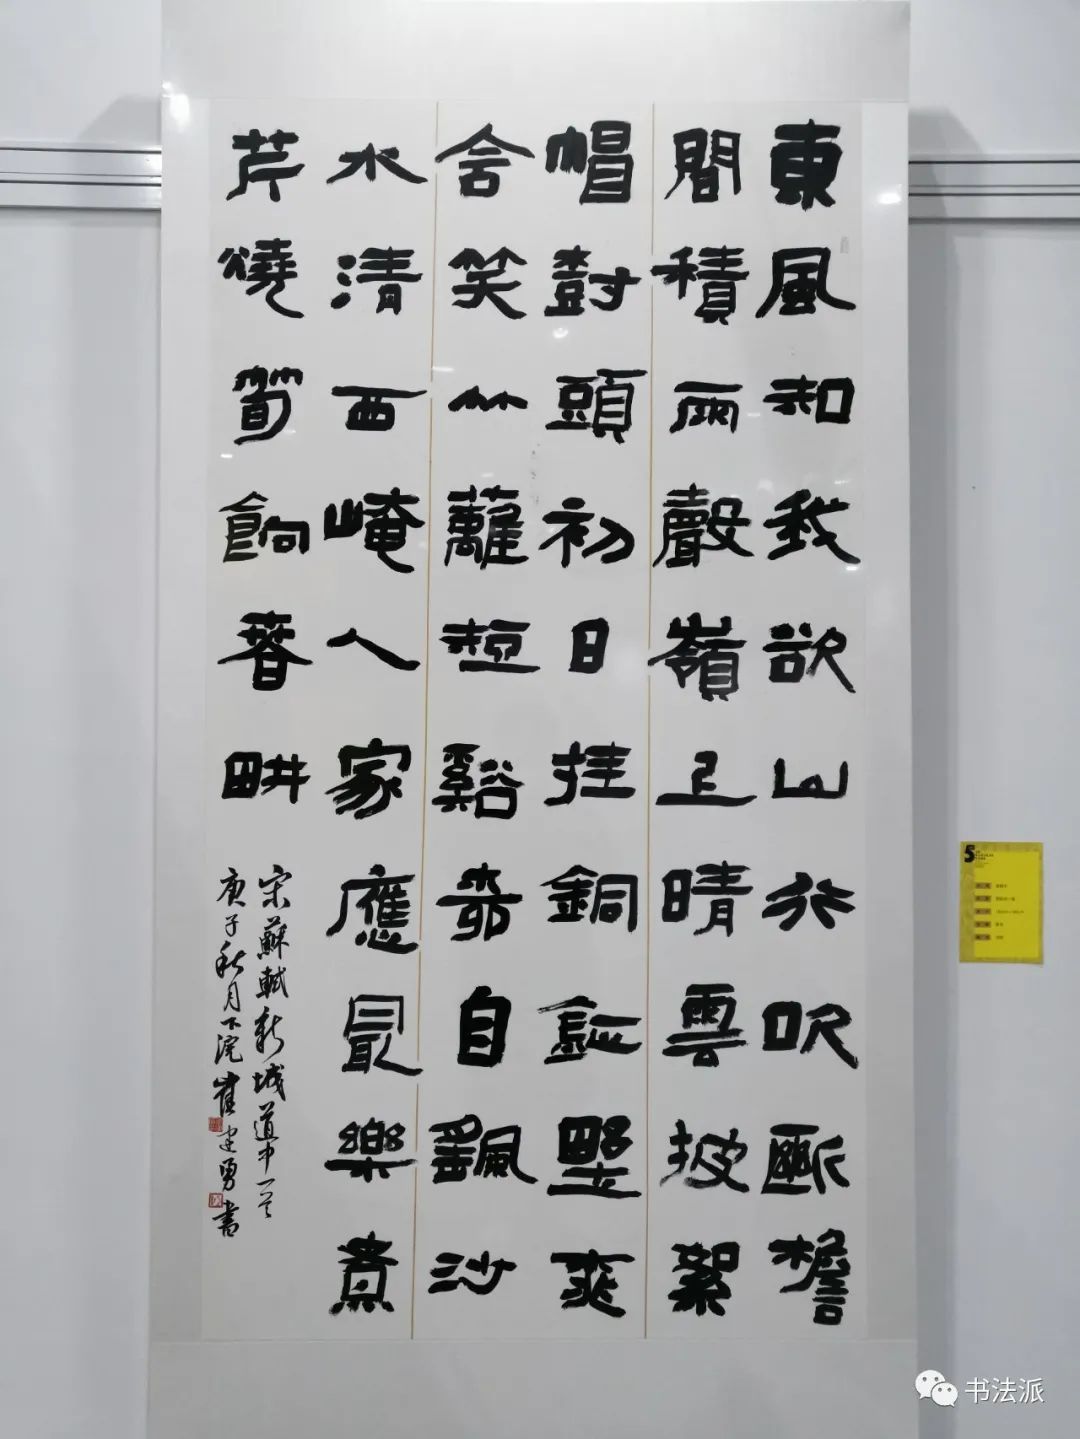 東風知我欲山行吹斷檐
間積雨聲嶺上晴雲披絮
帽尌頭初日挂銅鉦野桃
含笑竹籬短谿柳自颻沙
水清西崦人家應冣樂煮
芹燒筍餉春畊
宋蘇軾新城道中一首
庚子秋月下浣崔建勇書
书法派